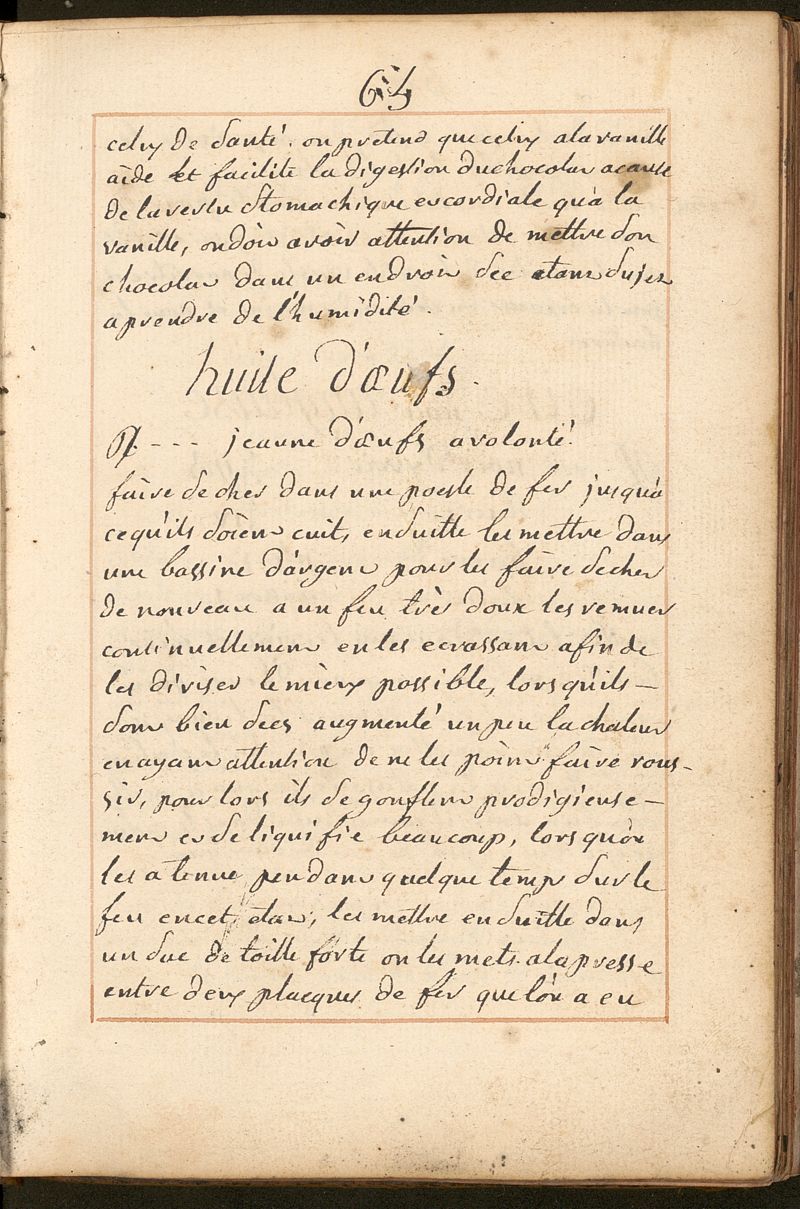 64
celuy de santé. on pretend que celuy a la vanille
aide et facilite la digestion du chocolat a cause
de la vertu stomachique et cordiale qu'a la
vanille, on doit avoir attention de mettre son
chocolat dans un endroit sec etant sujet
a prendre de l'humidité.
huile d'œufs.
℞. --- jeaune d'œufs a volonté.
faire secher dans une poesle de fer jusqu'a
ce qu'ils soient cuit, ensuitte les mettre dans
une bassine d'argent pour les faire secher
de nouveau a un feu très doux les remuer
continuellement en les ecrassant afin de
les diviser le mieux possible, lorsqu'ils —
sont bien secs augmenté un peu la chaleur
en ayant attention de ne les point faire rous-
sir, pour lors ils se gonflent prodigieuse —
ment et se liquifie beaucoup, lorsqu'on
les a tenue pendant quelque temps sur le
feu en cet etat, les mettre ensuitte dans
un sac de toille forte on les mets a la presse
entre deux placques de fer que l'on a eu